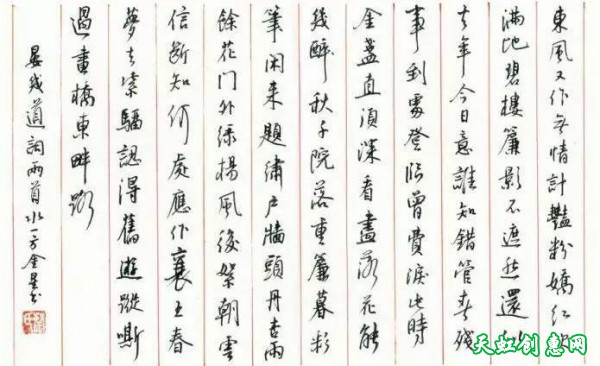 東風又作無情計艷粉嬌紅吹
滿地碧樓簾影不遮愁還似
去年今日意誰知錯管春殘
事到處登臨曾費淚此時
金盞直須深看盡落花能
幾醉秋千院落重簾暮彩
筆閑来題繡户牆頭丹杏雨
餘花门外綠楊風後絮朝雲
信斷知何處應作襄王春
夢去紫騮認得舊遊蹤嘶
過畫橋東畔路
晏幾道詞兩首水一方金星書
天虹创惠网